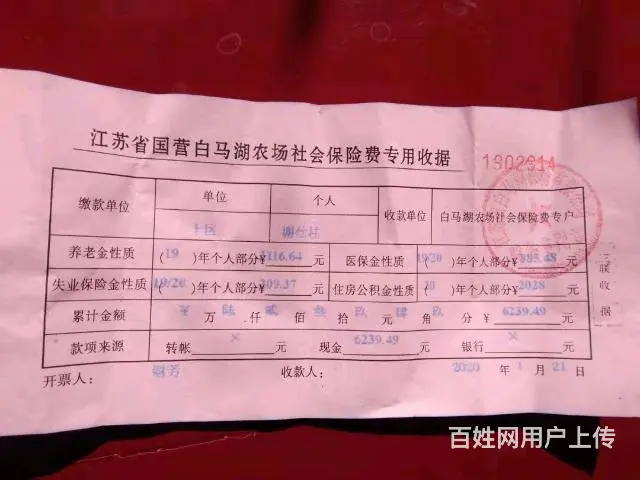 江苏省国营白马湖农场社会保险费专用收据
1902614
缴款单位 单位 个人 收款单位 白马湖农场社会保险费专户
十区
养老金性质 (19)年个人部分¥3116.64元 医保金性质 (19/20)年个人部分¥885.48元
失业保险金性质 (19/20)年个人部分¥209.37元 住房公积金性质 (20)年个人部分¥2028元
累计金额 ¥万陆仟贰佰叁拾玖元肆角玖分 ¥6239.49元
款项来源 转帐×元 现金6239.49元 银行×元
开票人: 收款人: 2020年1月21日
三联收据
百姓网用户上传